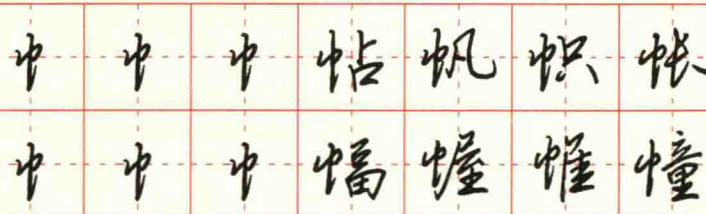 巾 巾 巾 帖 帆 帜 帐
巾 巾 巾 幅 幄 帷 幢